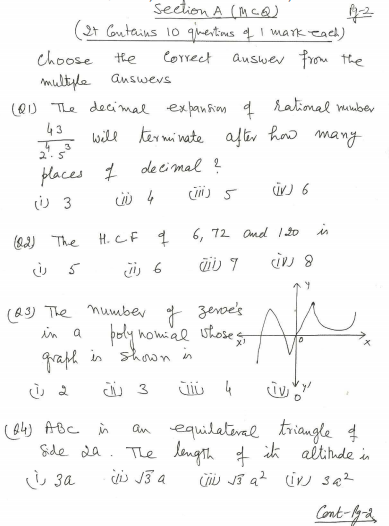 Section A (MCQ) Pg-2
(It Contains 10 questions of 1 mark each)
Choose the Correct answer from the
multple answers
(Q1) The decimal expansion of rational number
43/2^4·5^3 will terminate after how many
places of decimal?
(i) 3 (ii) 4 (iii) 5 (iv) 6
(Q2) The H.C.F of 6, 72 and 120 is
(i) 5 (ii) 6 (iii) 7 (iv) 8
(Q3) The number of zeroe's
in a polynomial whose
graph is shown is
Y
X' O X
Y'
(i) 2 (ii) 3 (iii) 4 (iv) 0
(Q4) ABC is an equilateral triangle of
Side 2a. The length of its altitude is
(i) 3a (ii) √3 a (iii) √3 a² (iv) 3a²
Cont-Pg-2